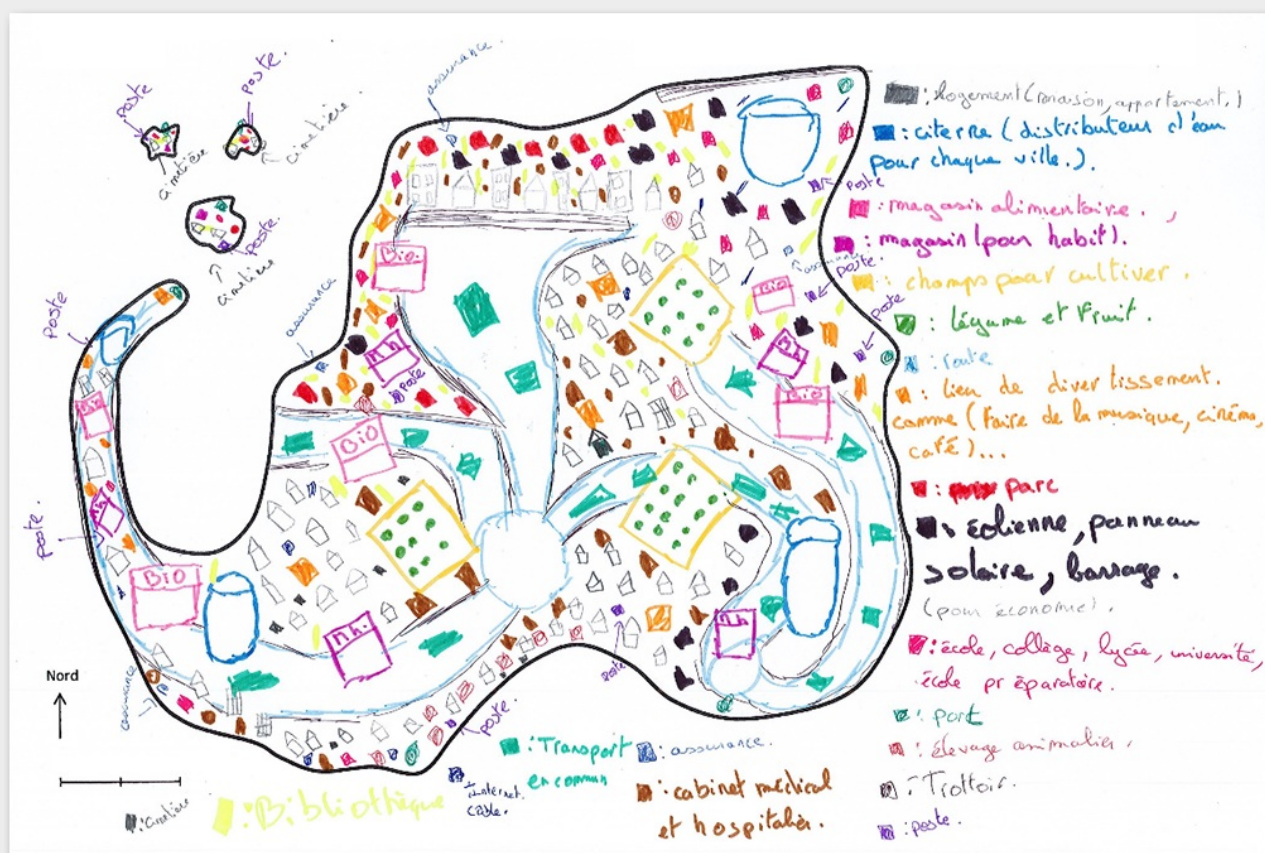 poste.
poste
assurance.
cimetière.
cimetière
poste.
cimetière
poste
assurance
Bio.
m.h
poste
BiO
Bio
m.h
poste.
BiO
assurance
m.h.
poste.
Poste
poste
assurance
Bio
poste.
poste
m.h
BiO
m.h
Nord
: logement (maison, appartement.)
: citerne (distributeur d'eau
pour chaque ville.).
: magasin alimentaire.
: magasin (pour habit).
: champs pour cultiver.
: légume et Fruit.
: route
: lieu de divertissement.
comme (faire de la musique, cinéma,
café)...
: parc
: éolienne, panneau
solaire, barrage.
(pour économie).
: école, collège, lycée, université,
école préparatoire.
: port
: élevage animalier.
: Trottoir.
: poste.
: Transport
en commun
: assurance.
: cabinet médical
et hospitalier.
internet
câble.
: Bibliothèque
: cimetière